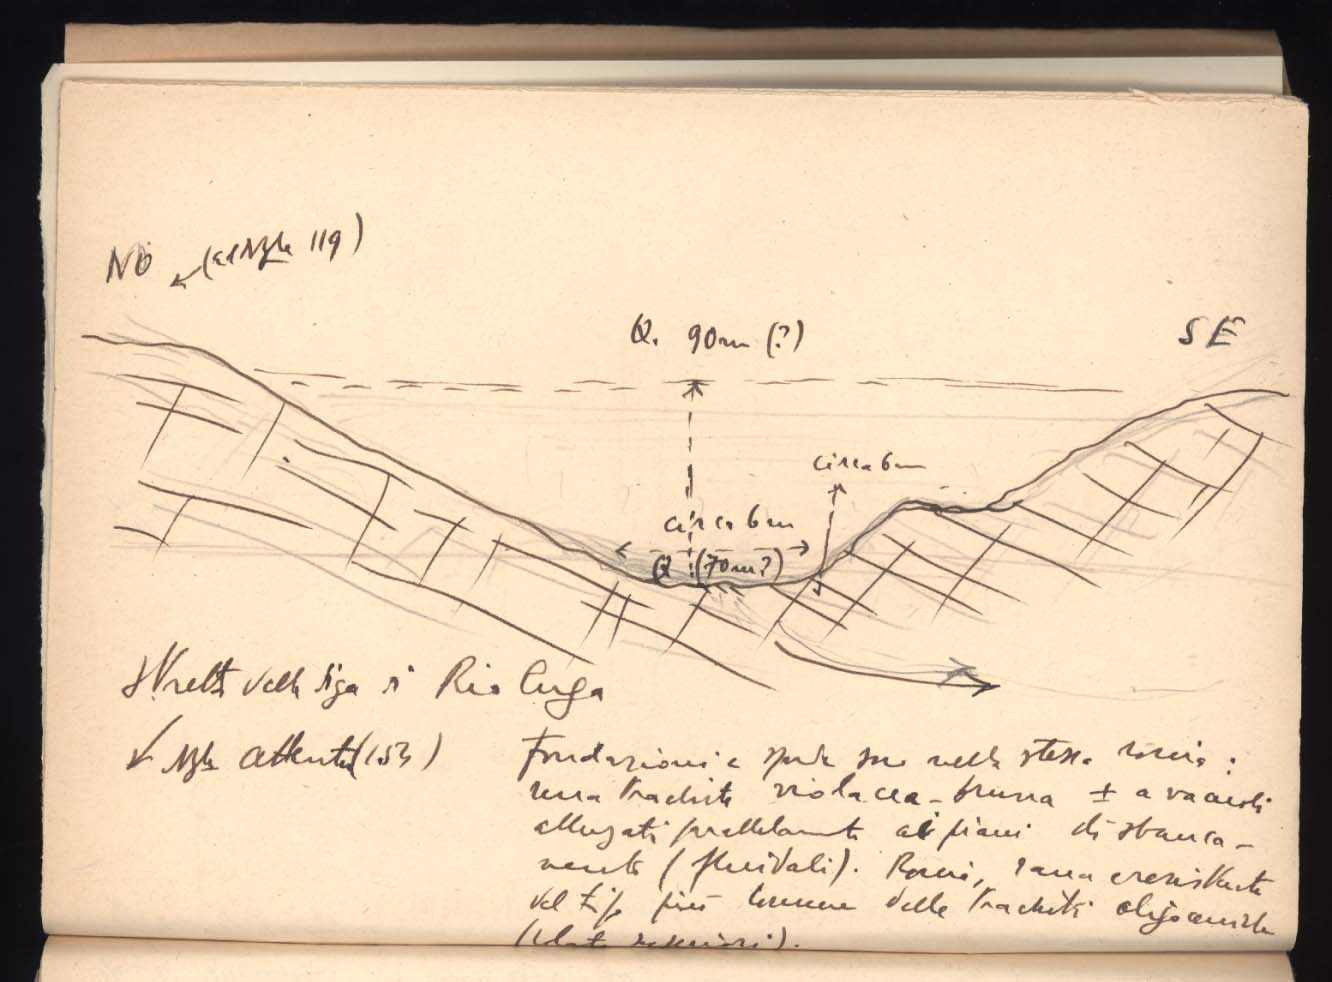 NO
119)
Q. 90m (?)
SE
circa 6m
circa 6m
Q (70m?)
Stretta della diga di Rio Cuga
(153)
Fondazioni e sponde sono nella stessa roccia:
una trachite violacea-bruna ± a vacuoli
allungati parallelamente ai piani di stanca-
mento (fluidali). Roccia, sana e resistente
del tipo più comune delle trachiti oligoceniche